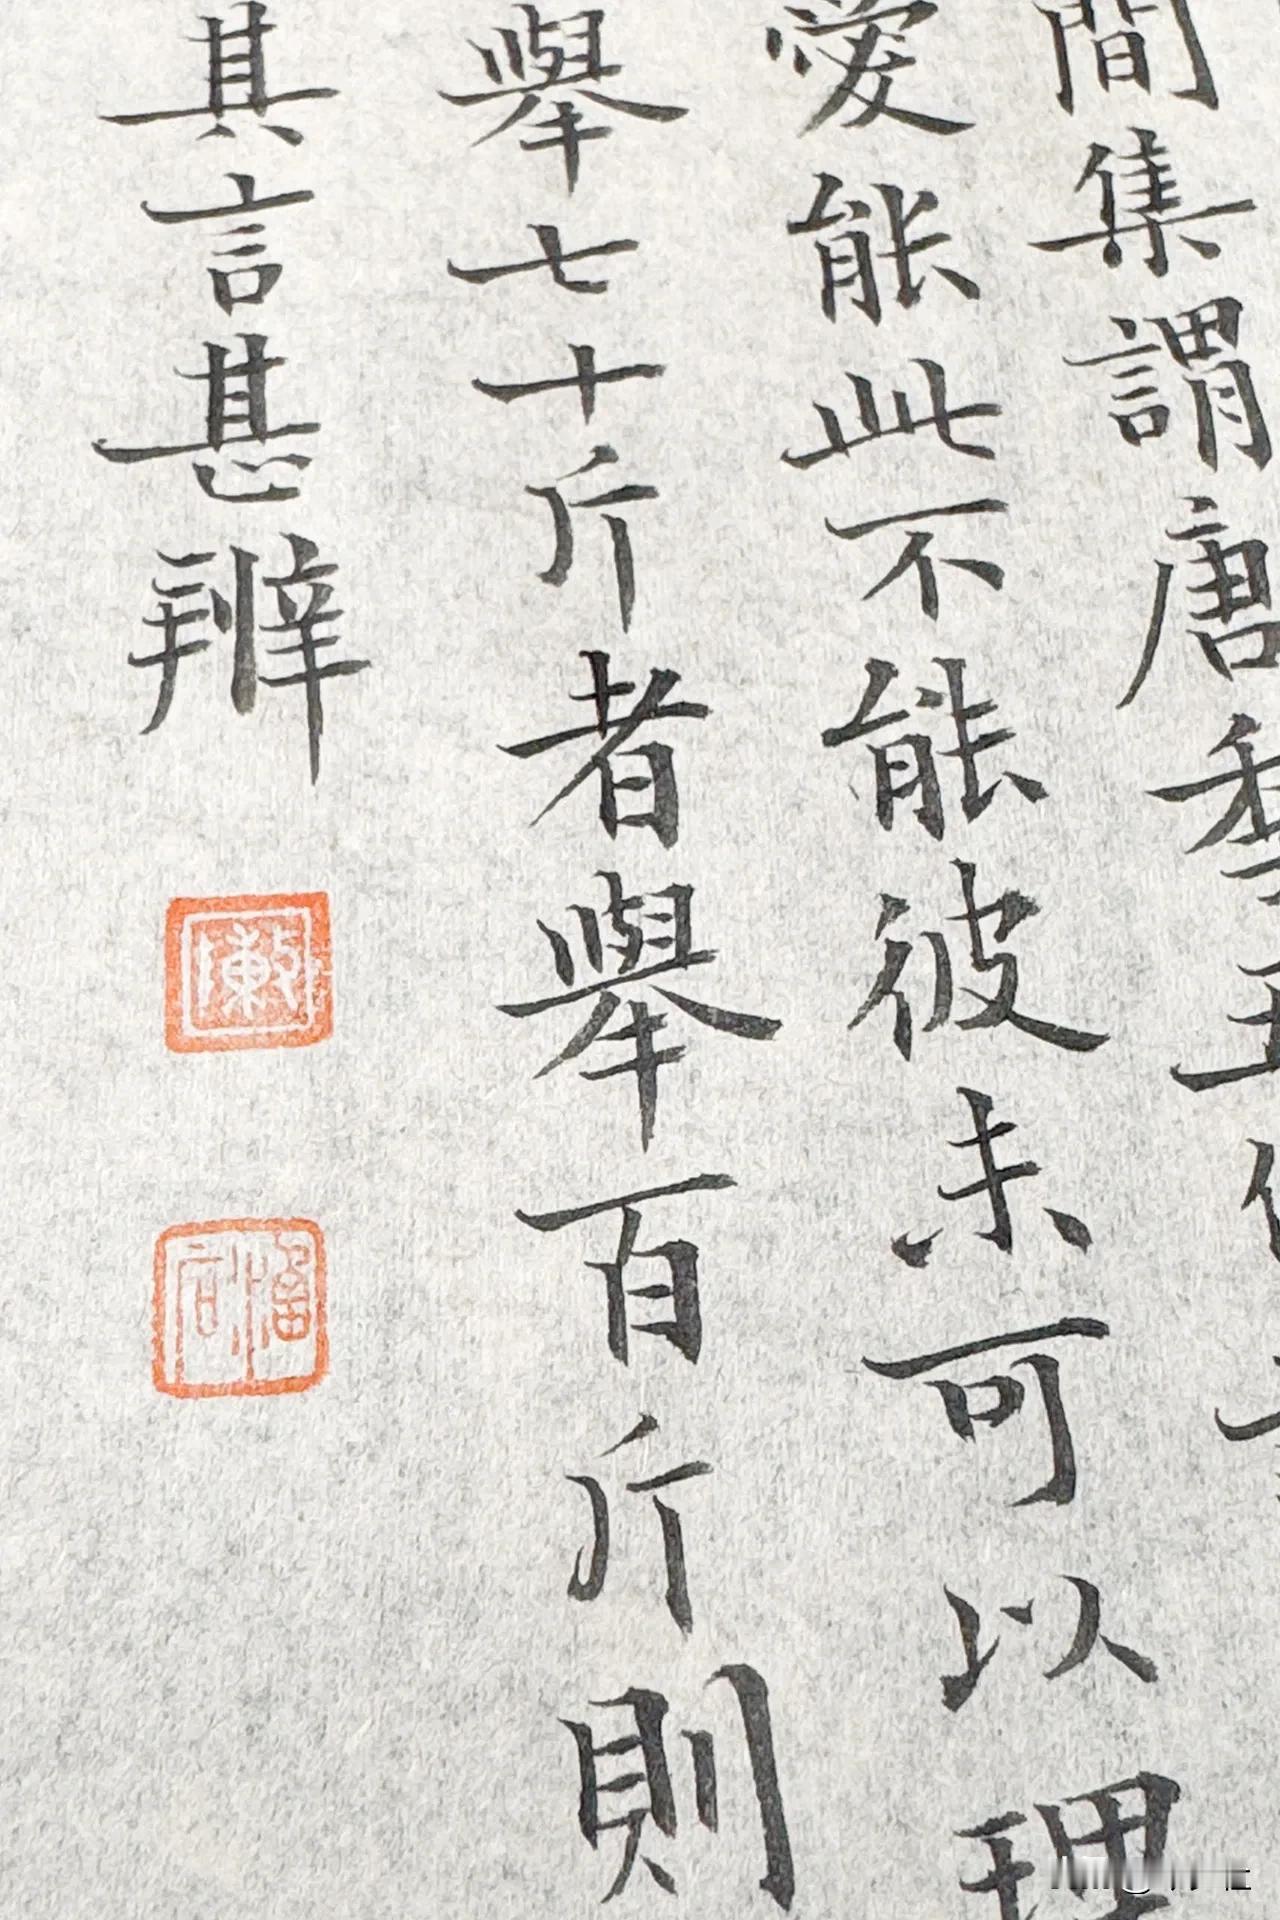 間集謂唐
愛能此不能彼未可以理
舉七十斤者舉百斤則
其言甚辨